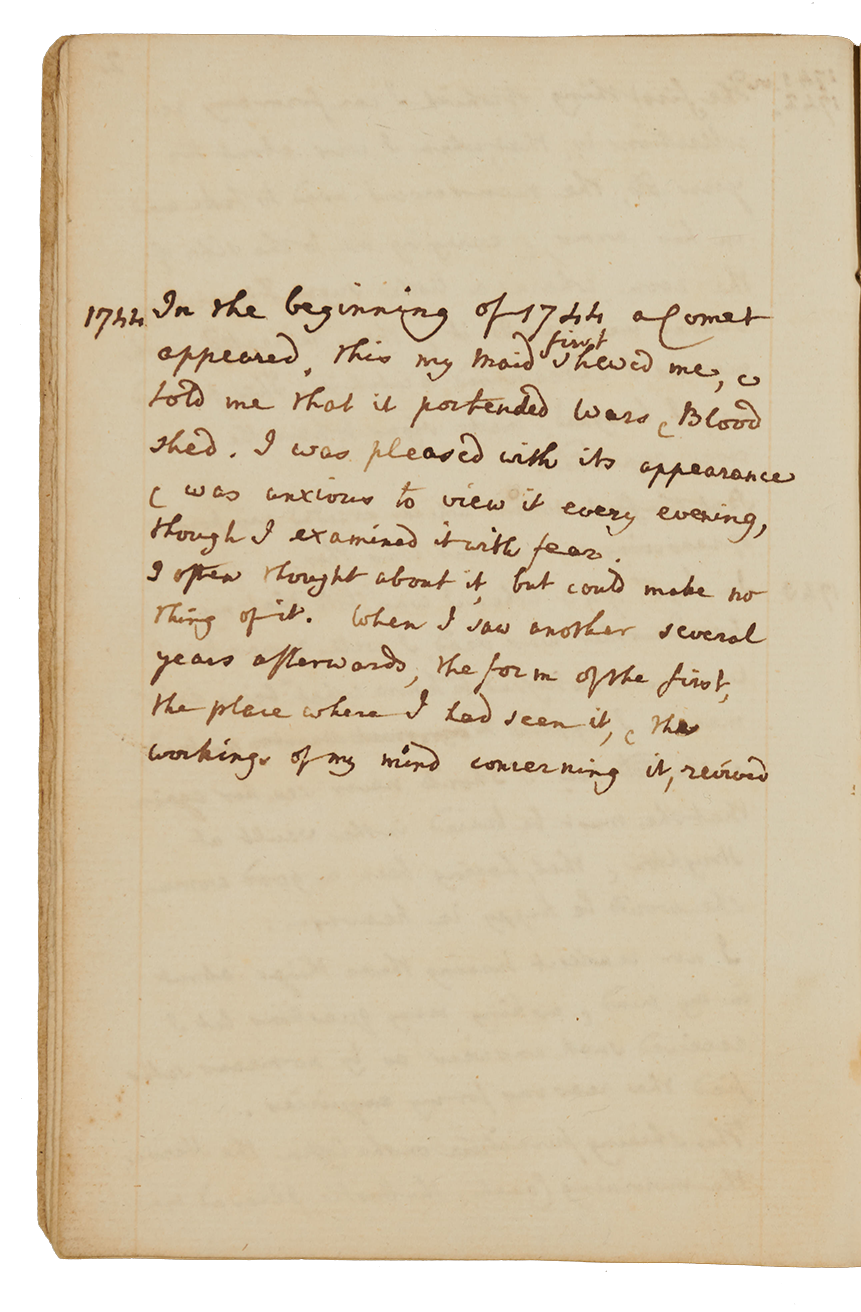 1744 In the beginning of 1744 a Comet
appeared, this my Maid first shewed me, &
told me that it portended Wars & Blood
shed. I was pleased with its appearance
& was anxious to view it every evening,
though I examined it with fear.
I often thought about it, but could make no
thing of it. When I saw another several
years afterwards, the form of the first,
the place where I had seen it, & the
workings of my mind concerning it, revived